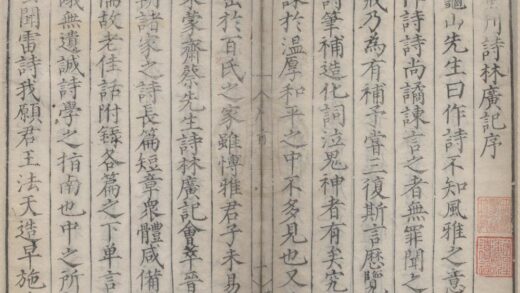 刊詩林廣記序
龜山先生曰作詩不知風雅之意
作詩詩尚譎諫言之者無罪聞之
戒乃為有補予甞三復斯言歴覽
詩筆補造化詞泣鬼神者有矣究
諫於溫厚和平之中不多見也又
出於百氏之家雖愽雅君子未易
宋蒙齋蔡先生詩林廣記會萃晉
朝諸家之詩長篇短章衆體咸備
儒故老佳話附錄各篇之下單言
無遺誠詩學之指南也中之所
聞雷詩我願君王法天造早施